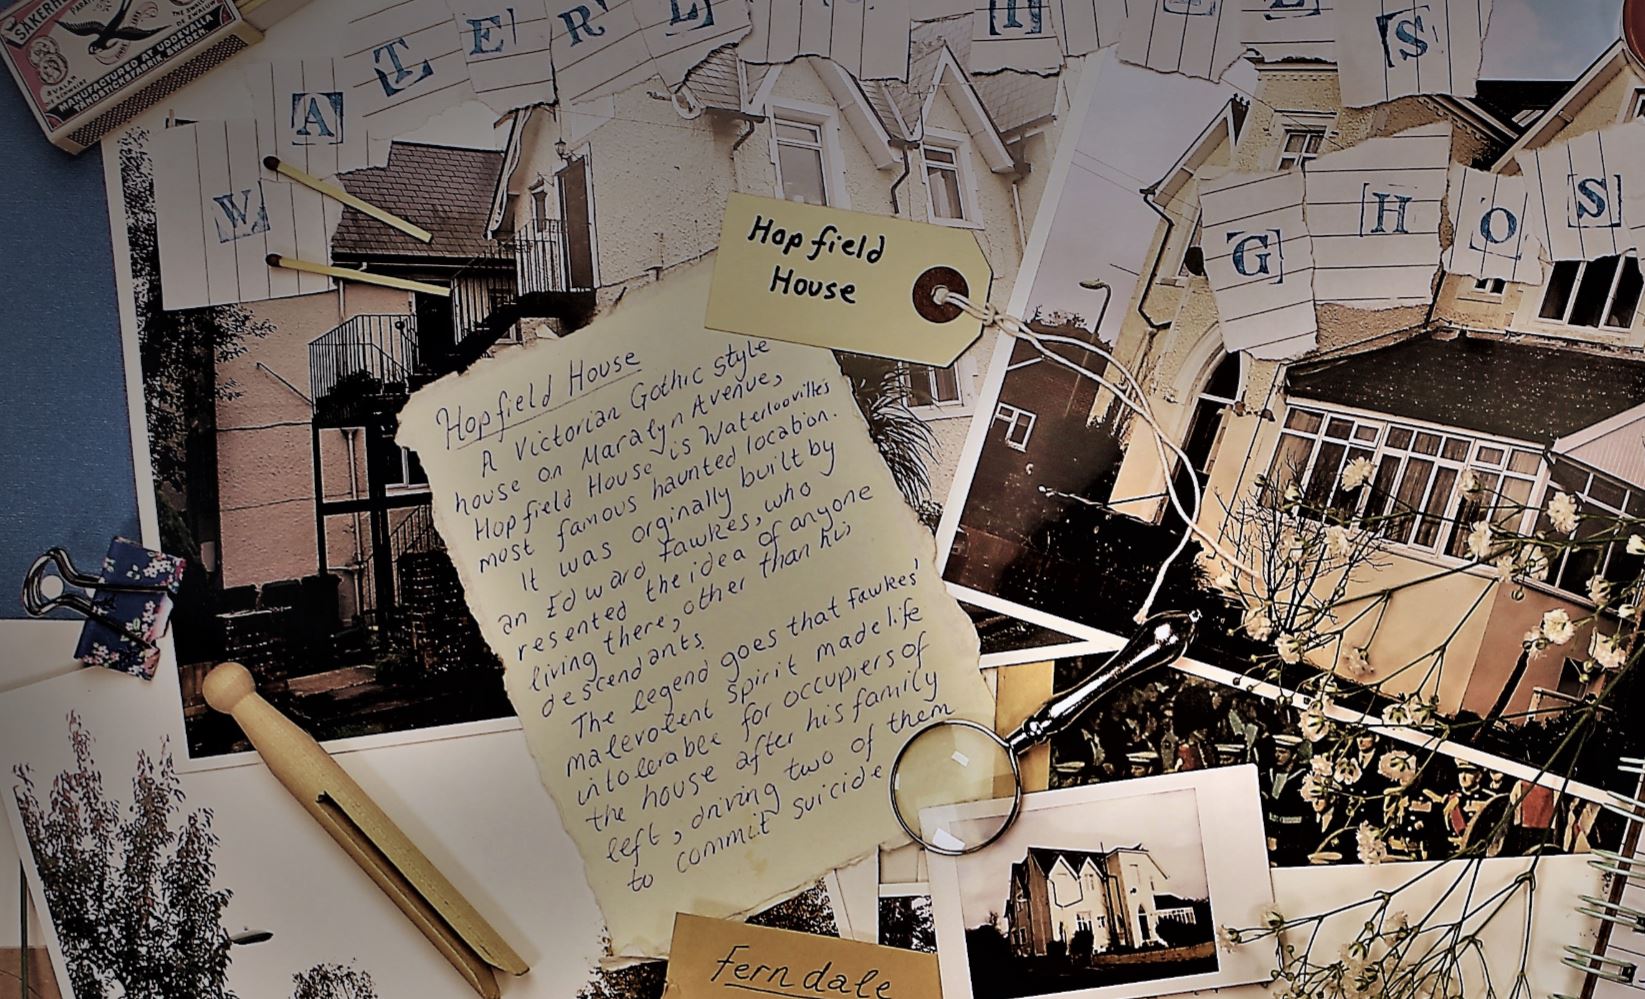 SÄKERH
MANUFACTURED AT UDDEVALLA
TÄNDSTICKSFABRIK, SWEDEN.
W A T E R L
S
G H O S
Hopfield
House
Hopfield House
A Victorian Gothic style
house on Maralyn Avenue,
Hopfield House is Waterlooville's
most famous haunted location.
It was orginally built by
an Edward Fawkes, who
resented the idea of anyone
living there, other than his
descendants.
The legend goes that Fawkes'
malevolent spirit made life
intolerable for occupiers of
the house after his family
left, driving two of them
to commit suicide
Ferndale